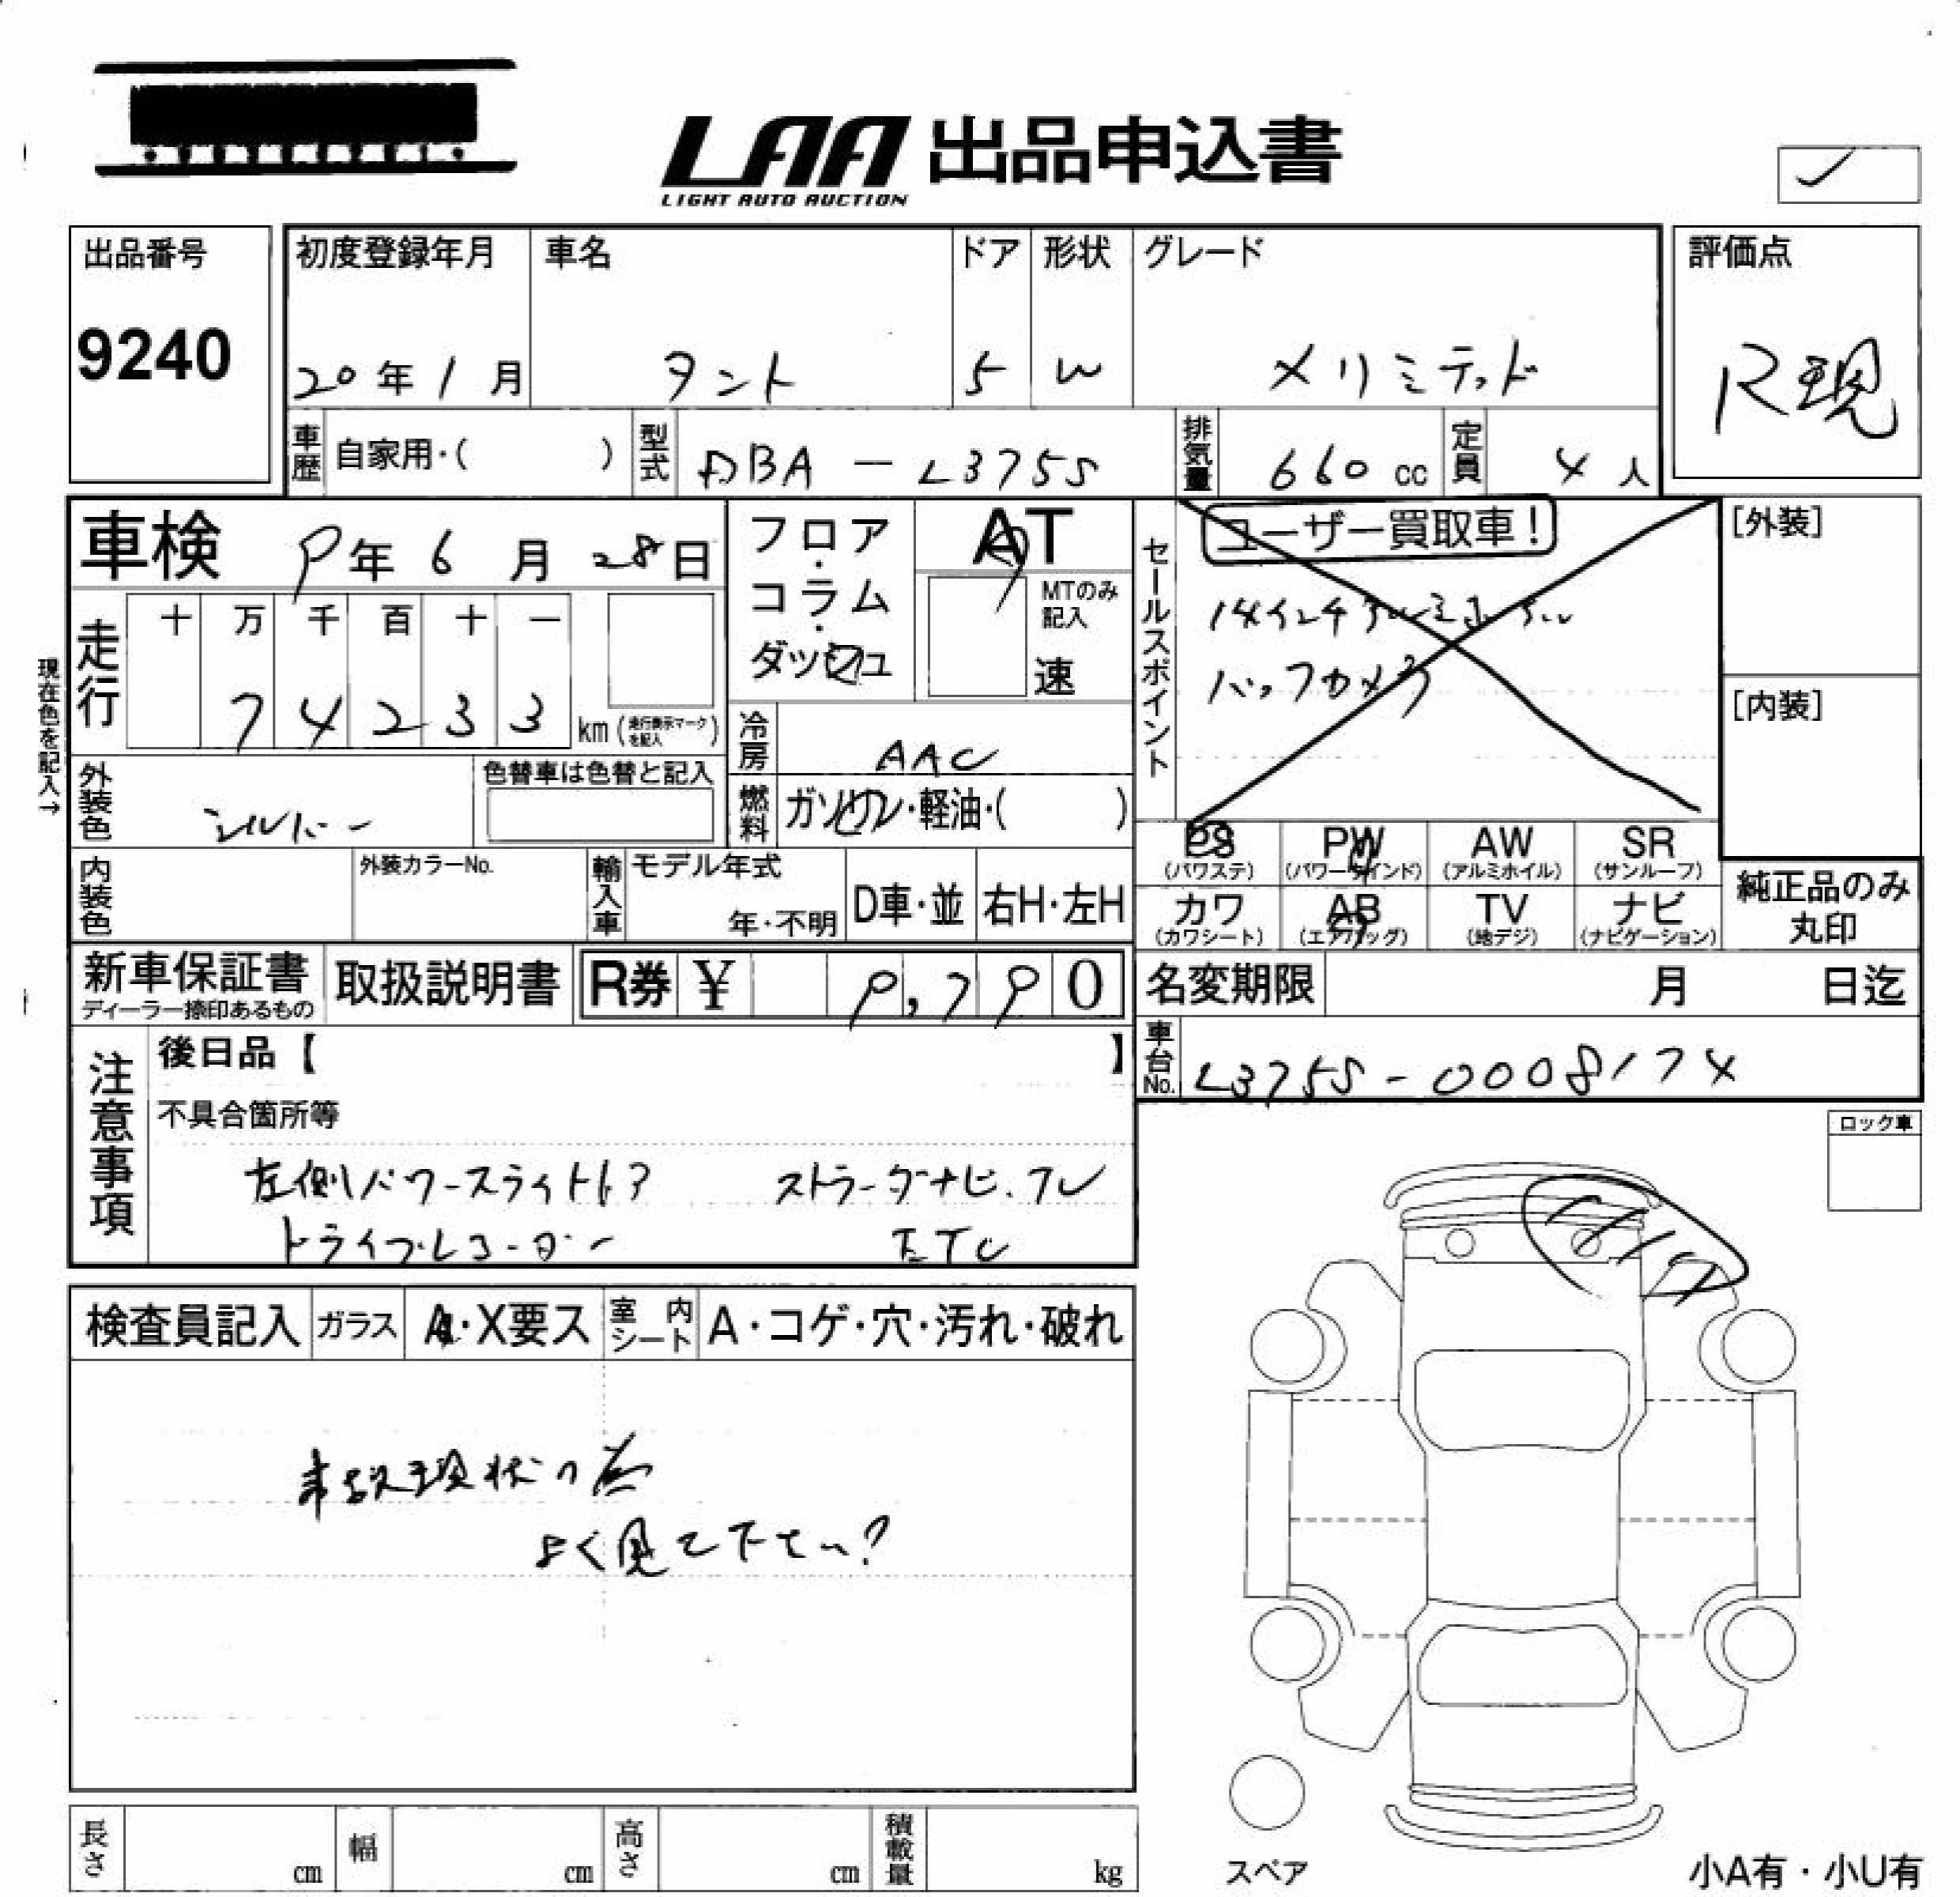 LAA 出品申込書
LIGHT AUTO AUCTION
出品番号
9240
初度登録年月
20年1月
車名
タント
ドア
5
形状
W
グレード
メリミテッド
評価点
R現
車歴 自家用・( )
型式 DBA - L375S
排気量 660 cc
定員 4人
車検 9年6月28日
フロア・コラム・ダッシュ
AT
MTのみ記入
速
現在色を記入→
走行
十 万 千 百 十 一
7 4 2 3 3
km (走行表示マークを記入)
冷房 AAC
外装色 シルバー
色替車は色替と記入
燃料 ガソリン・軽油・( )
内装色
外装カラーNo.
輸入車
モデル年式
年・不明
D車・並
右H・左H
セールスポイント
ユーザー買取車!
14インチアルミホイル
バックカメラ
[外装]
[内装]
PS (パワステ)
PW (パワーウインド)
AW (アルミホイル)
SR (サンルーフ)
カワ (カワシート)
AB (エアバッグ)
TV (地デジ)
ナビ (ナビゲーション)
純正品のみ丸印
新車保証書
ディーラー捺印あるもの
取扱説明書
R券 ¥ 9,790
名変期限 月 日迄
車台No. L375S-0008174
注意事項
後日品【 】
不具合箇所等
左側パワースライドドア ストラーダナビ.TV
ドライブレコーダー ETC
ロック車
検査員記入
ガラス A・X要ス
室内シート A・コゲ・穴・汚れ・破れ
事故現状の為
よく見て下さい?
長さ cm
幅 cm
高さ cm
積載量 kg
スペア
小A有・小U有